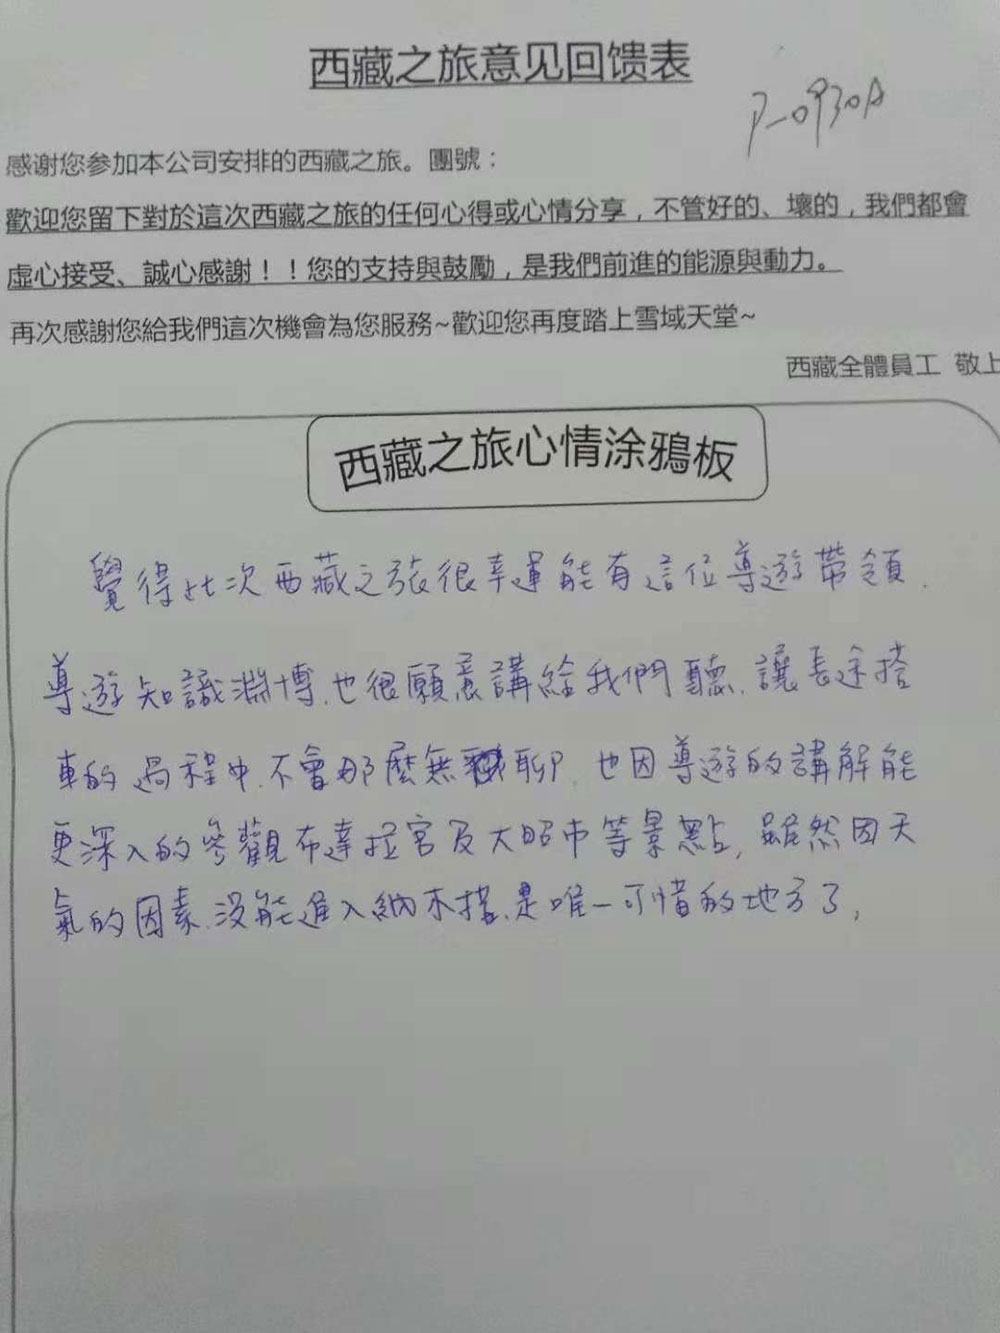 西藏之旅意见回馈表
P-0930A
感谢您参加本公司安排的西藏之旅。團號：
歡迎您留下對於這次西藏之旅的任何心得或心情分享，不管好的、壞的，我們都會
虛心接受、誠心感謝！！您的支持與鼓勵，是我們前進的能源與動力。
再次感謝您給我們這次機會為您服務~歡迎您再度踏上雪域天堂~
西藏全體員工 敬上
西藏之旅心情涂鴉板
覺得此次西藏之旅很幸運能有這位導遊帶領.
導遊知識淵博.也很願意講給我們聽.讓長途搭
車的過程中.不會那麼無聊.也因導遊的講解能
更深入的參觀布達拉宮及大昭市等景點,雖然因天
氣的因素.沒能進入納木搭.是唯一可惜的地方了,